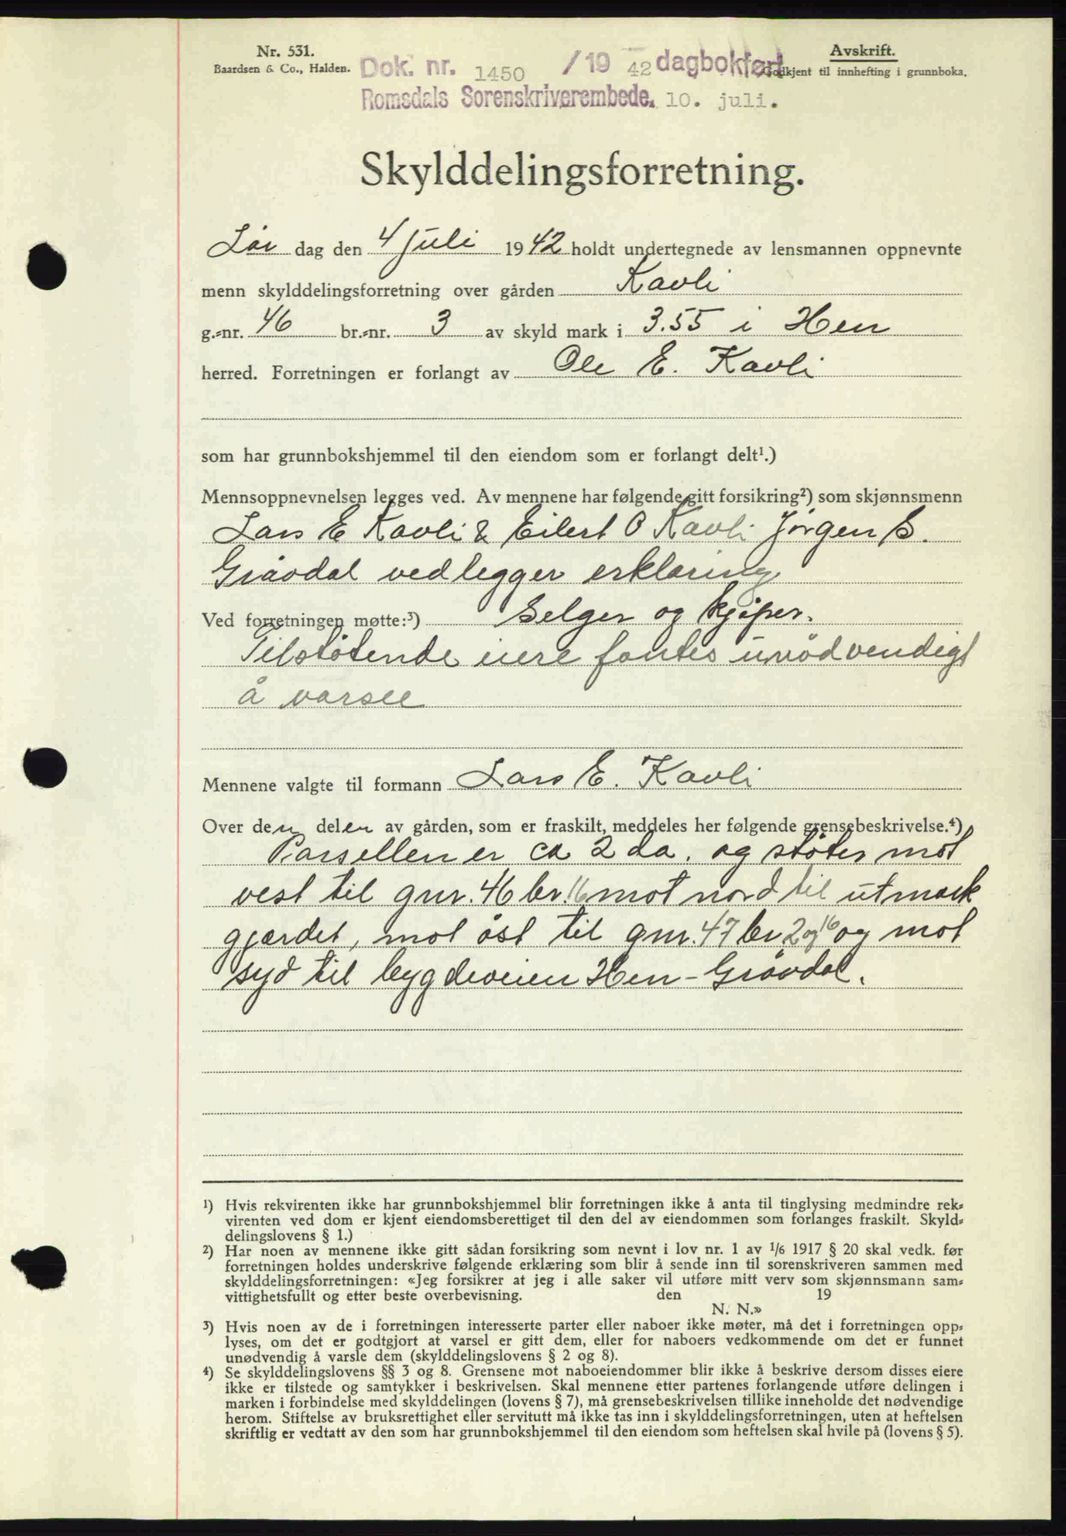 Nr. 531.
Baardsen & Co., Halden.
Avskrift.
Godkjent til innhefting i grunnboka.
Dok. nr. 1450 /19 42 dagbokført
Romsdals Sorenskriverembede. 10. juli.
Skylddelingsforretning.
Lør dag den 4 Juli 1942 holdt undertegnede av lensmannen oppnevnte
menn skylddelingsforretning over gården Kavli
g.-nr. 46 br.-nr. 3 av skyld mark i 3.55 i Hen
herred. Forretningen er forlangt av Ole E. Kavli
som har grunnbokshjemmel til den eiendom som er forlangt delt¹.)
Mennsoppnevnelsen legges ved. Av mennene har følgende gitt forsikring²) som skjønnsmenn
Lars E Kavli & Eilert O Kavli Jørgen S.
Grøvdal vedlegger erklæring
Ved forretningen møtte:³) Selger og kjøper.
Tilstøtende eiere fantes unødvendigt
å varsle
Mennene valgte til formann Lars E. Kavli
Over den delen av gården, som er fraskilt, meddeles her følgende grensebeskrivelse.⁴)
Parsellen er ca 2 da. og støter mot
vest til gnr. 46 br. 16 mot nord til utmark
gjerdet, mot øst til gnr. 47 br 2 og 16 og mot
syd til bygdeveien Hen - Grøvdal.
¹) Hvis rekvirenten ikke har grunnbokshjemmel blir forretningen ikke å anta til tinglysing medmindre rek-
virenten ved dom er kjent eiendomsberettiget til den del av eiendommen som forlanges fraskilt. Skyld-
delingslovens § 1.)
²) Har noen av mennene ikke gitt sådan forsikring som nevnt i lov nr. 1 av 1/6 1917 § 20 skal vedk. før
forretningen holdes underskrive følgende erklæring som blir å sende inn til sorenskriveren sammen med
skylddelingsforretningen: «Jeg forsikrer at jeg i alle saker vil utføre mitt verv som skjønnsmann sam-
vittighetsfullt og etter beste overbevisning. den 19
N. N.»
³) Hvis noen av de i forretningen interesserte parter eller naboer ikke møter, må det i forretningen opp-
lyses, om det er godtgjort at varsel er gitt dem, eller for naboers vedkommende om det er funnet
unødvendig å varsle dem (skylddelingslovens § 2 og 8).
⁴) Se skylddelingslovens §§ 3 og 8. Grensene mot naboeiendommer blir ikke å beskrive dersom disses eiere
ikke er tilstede og samtykker i beskrivelsen. Skal mennene etter partenes forlangende utføre delingen i
marken i forbindelse med skylddelingen (lovens § 7), må grensebeskrivelsen tillike inneholde det nødvendige
herom. Stiftelse av bruksrettighet eller servitutt må ikke tas inn i skylddelingsforretningen, uten at heftelsen
skriftlig er vedtatt av den som har grunnbokshjemmel til den eiendom som heftelsen skal hvile på (lovens § 5).